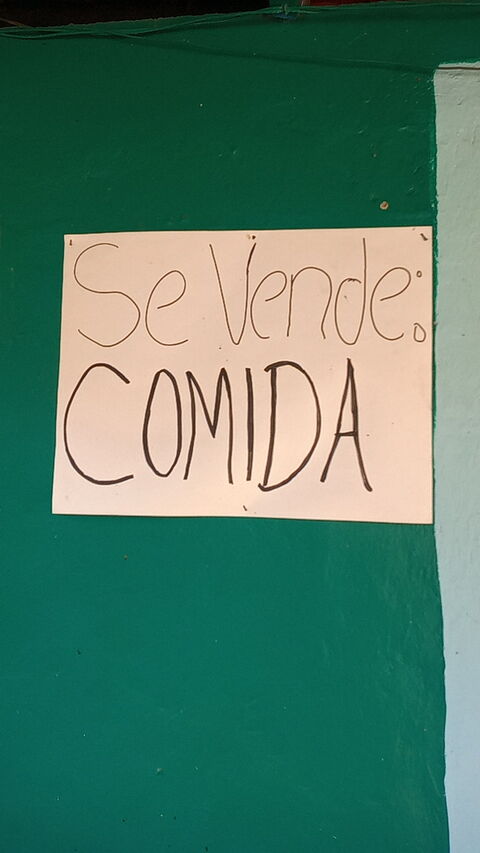 Se Vende:
COMIDA